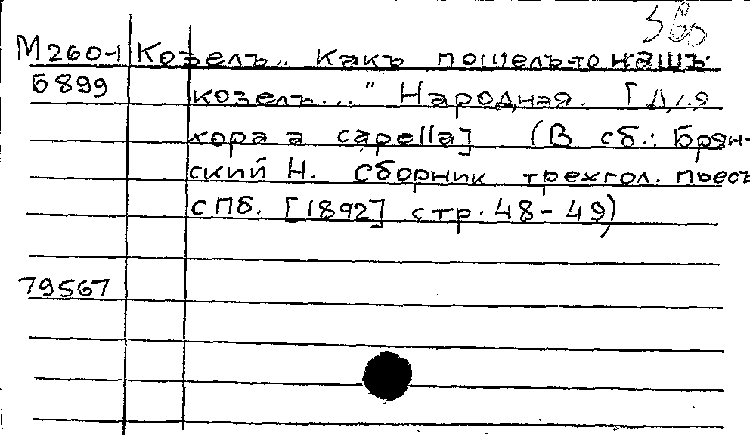 М260-1 Козелъ „ Какъ пошелъ-то нашъ
Б899 козелъ..." Народная. [Для
хора a capella] (В сб.: Брян-
ский Н. Сборник трехгол. пьесъ
СПб. [1892] стр. 48-49)
79567